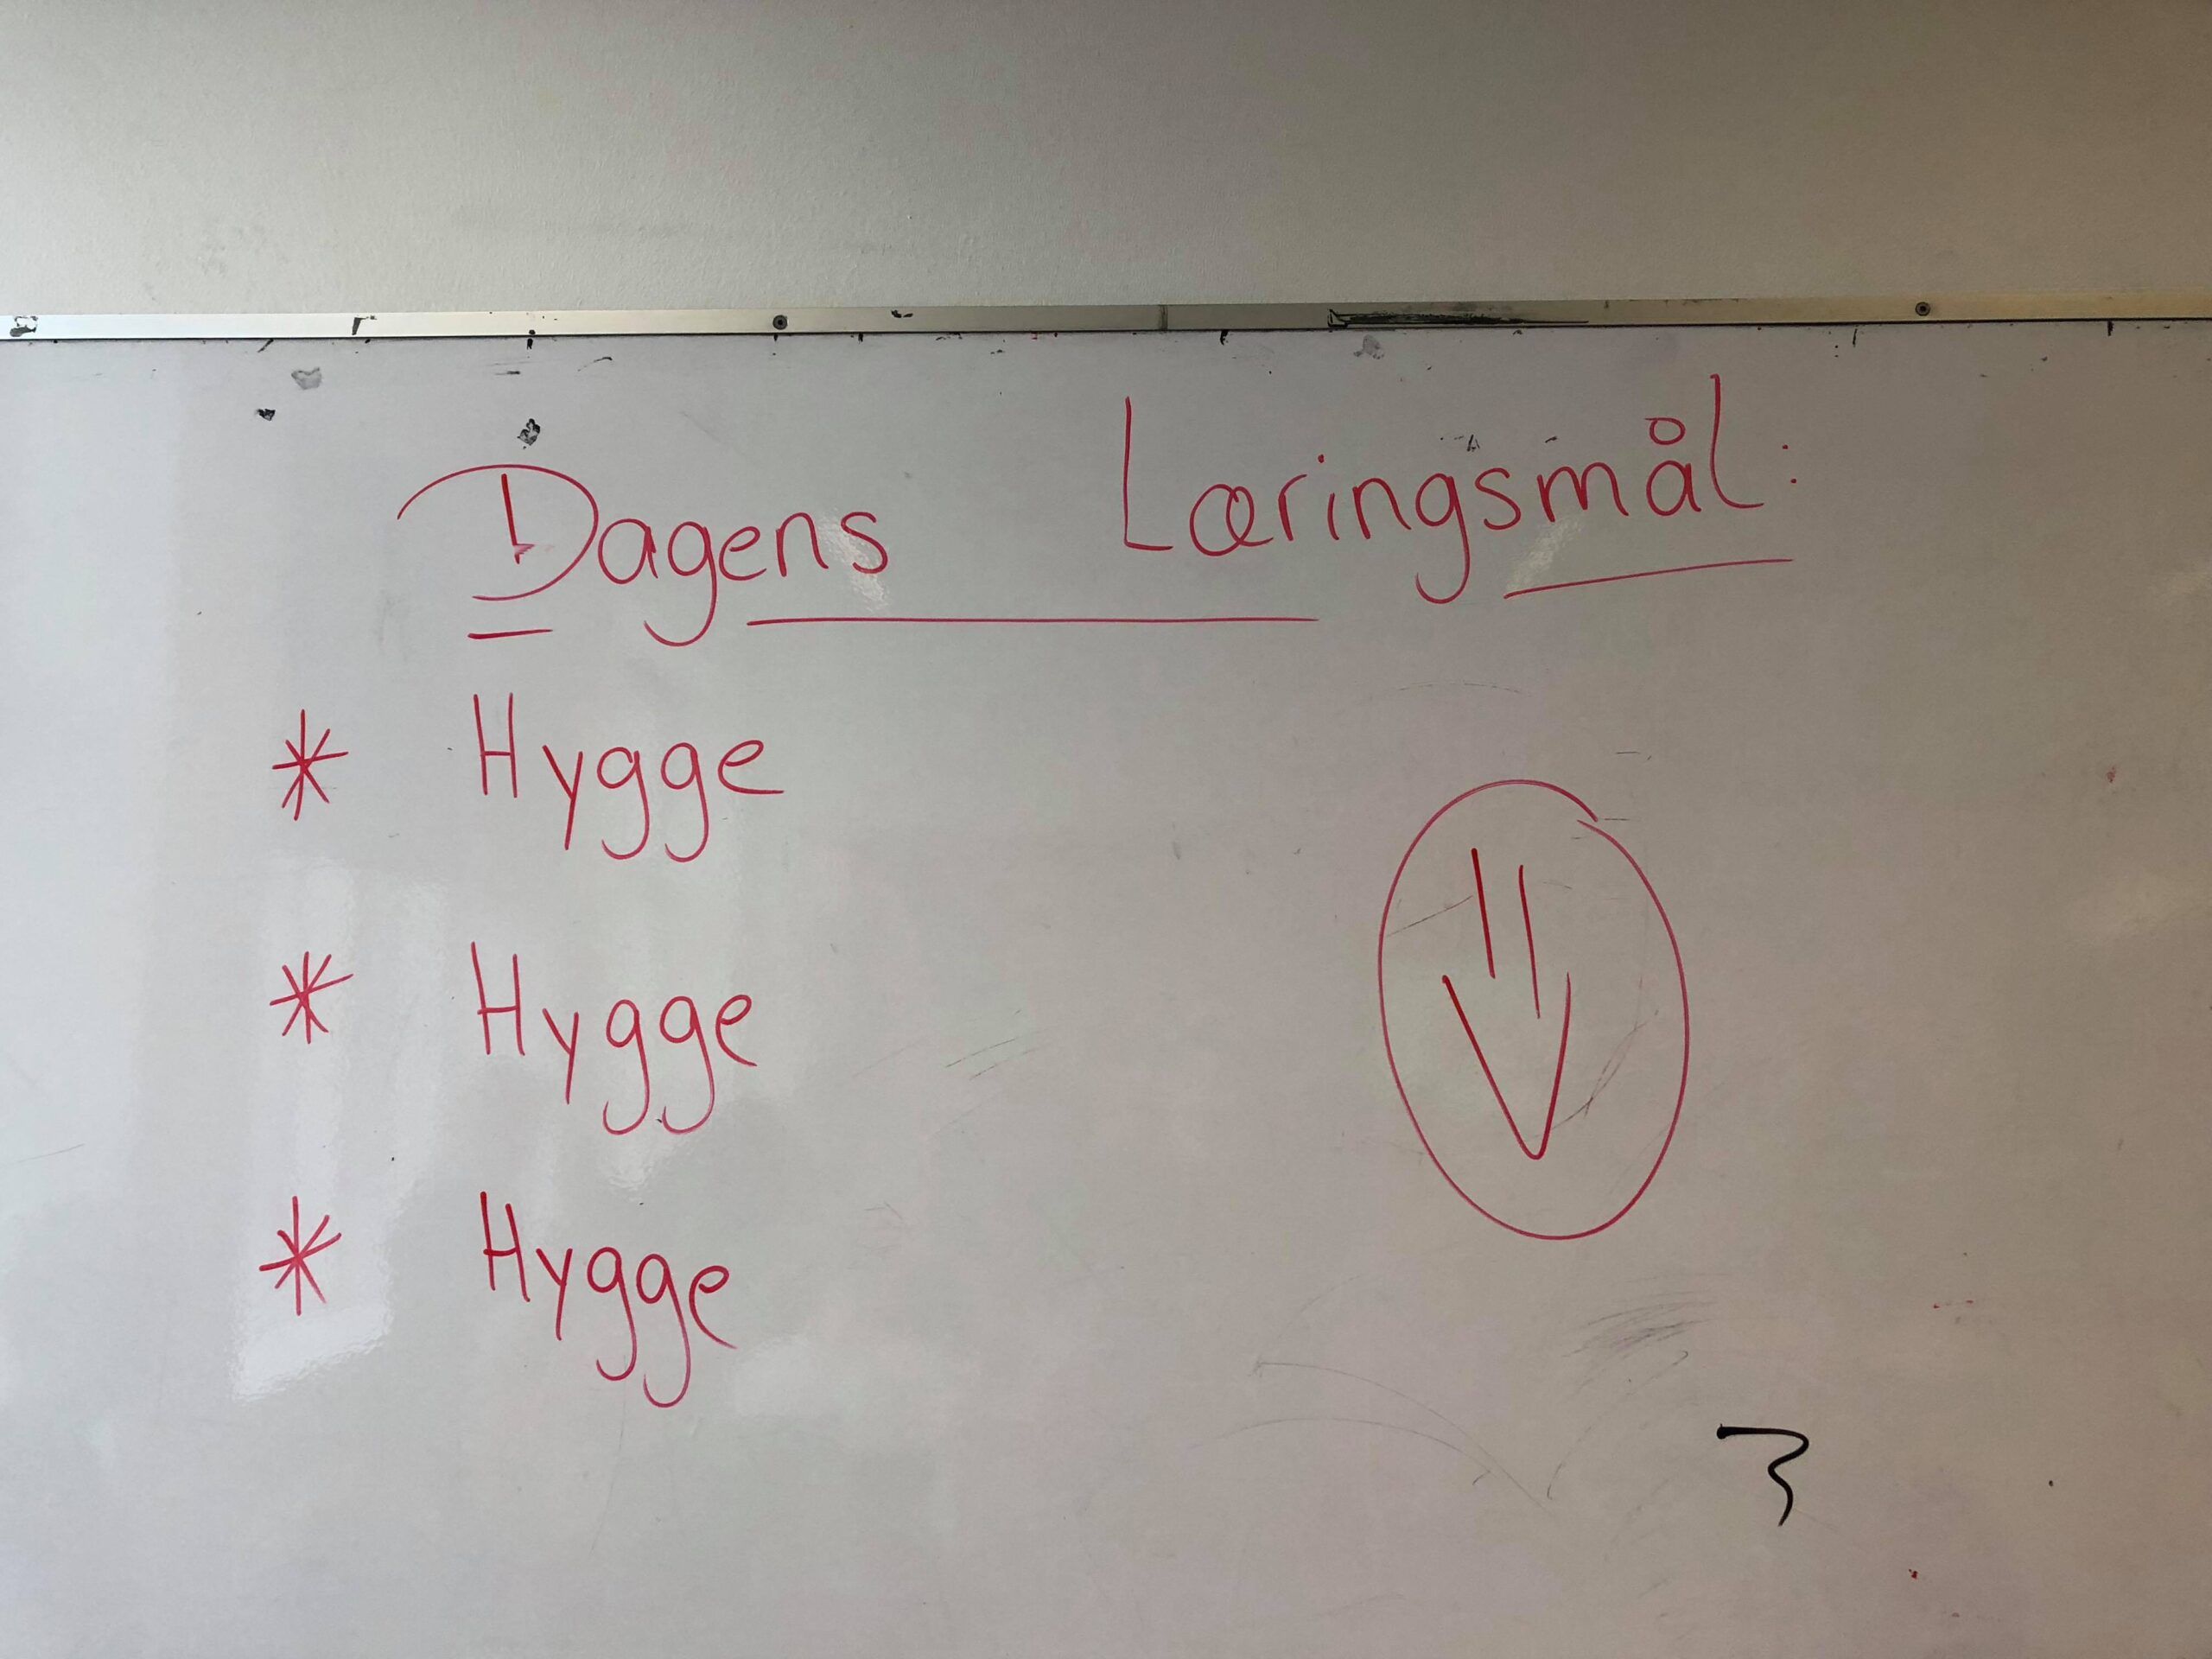 Dagens Læringsmål:
* Hygge
* Hygge
* Hygge